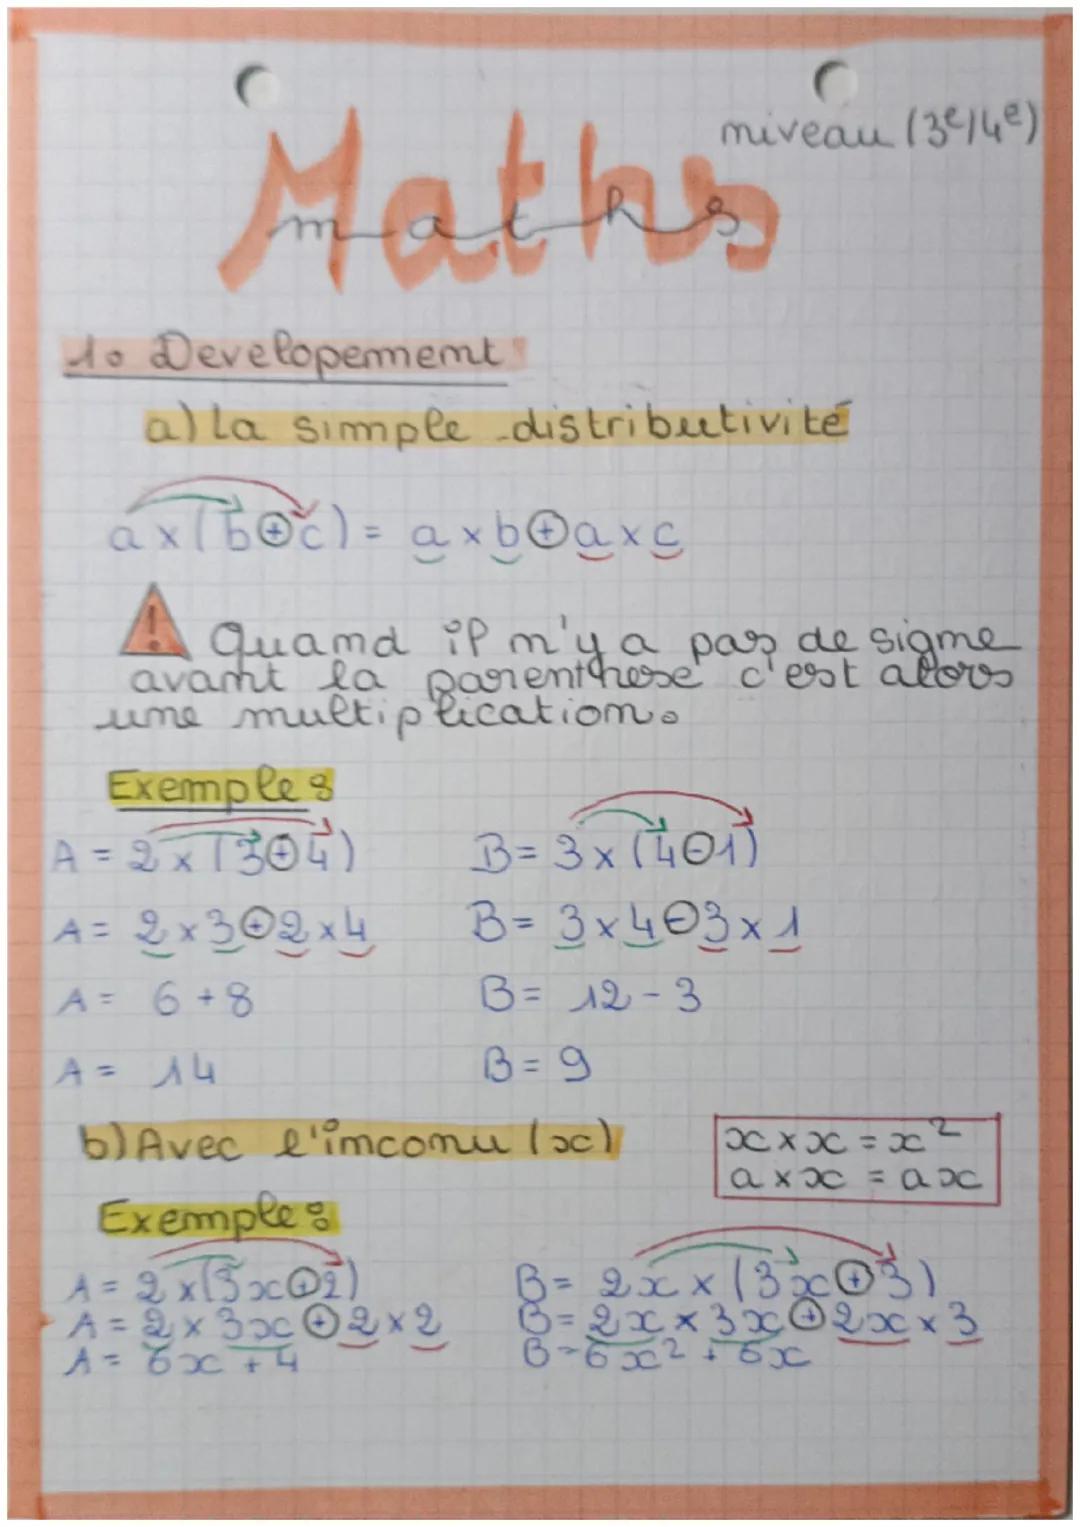 niveau (3e/4e)
Maths
maths
1. Developement
a) La simple distributivité
a x (b+c) = a x b + a x c
! Quand il n'y a pas de signe
avant la parenthese c'est alors
une multiplication.
Exemple :
A = 2 x (3+4)
A = 2 x 3 + 2 x 4
A = 6 + 8
A = 14
B = 3 x (4-1)
B = 3 x 4 - 3 x 1
B = 12 - 3
B = 9
b) Avec l'inconu (x)
x x x = x²
a x x = ax
Exemple :
A = 2 x (3x+2)
A = 2 x 3x + 2 x 2
A = 6x + 4
B = 2x x (3x+3)
B = 2x x 3x + 2x x 3
B = 6x² + 6x